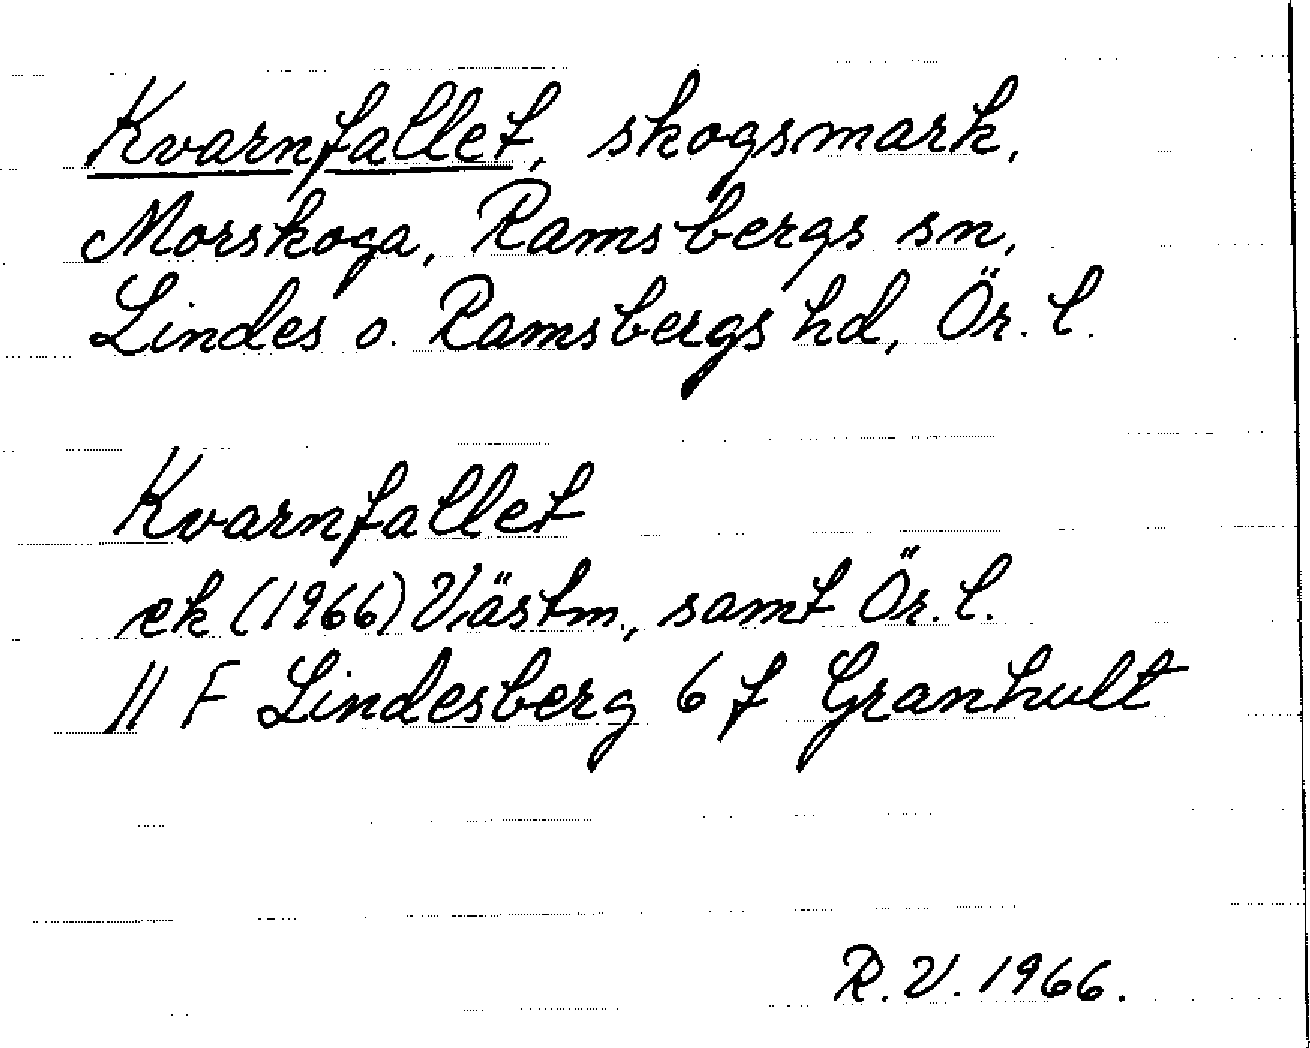 Kvarnfallet, skogsmark,
Morskoga, Ramsbergs sn,
Lindes o. Ramsbergs hd, Ör. l.
Kvarnfallet
ek (1966) Västm., samt Ör. l.
11 F Lindesberg 6 f Granhult
R. V. 1966.